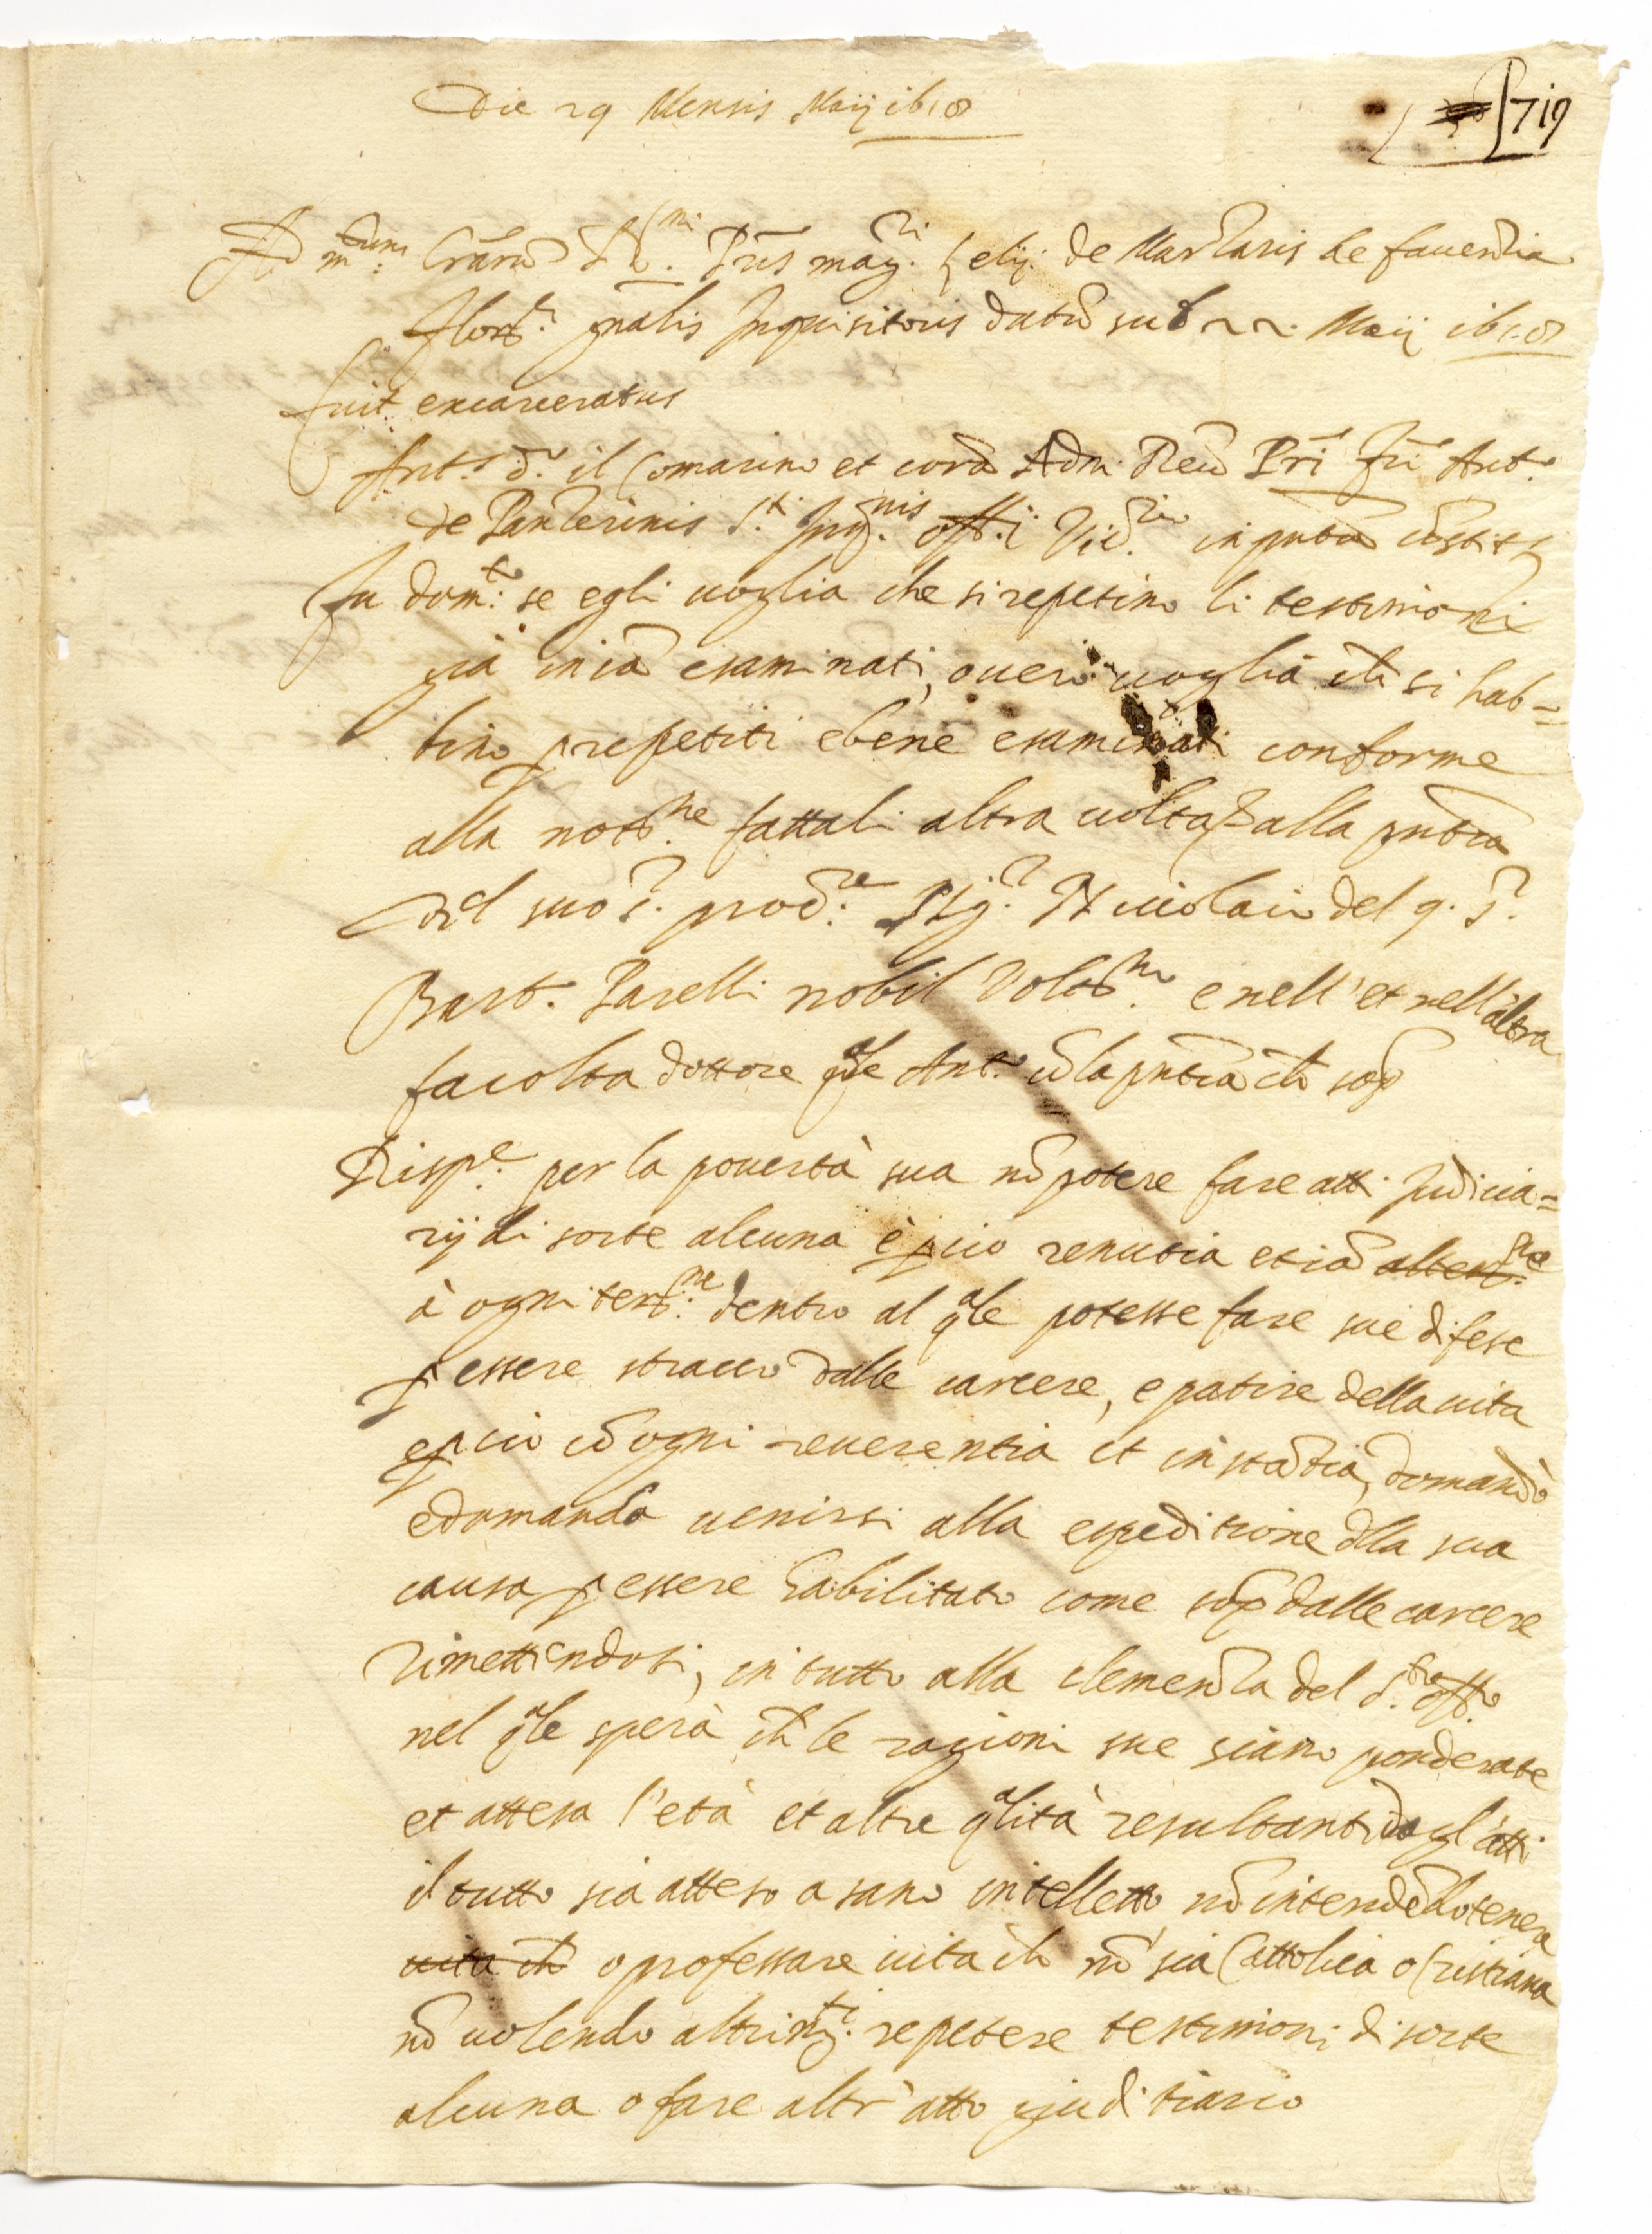 Die 29 Mensis Maij 1618
719
Ad Pris mag.ri Lelij de Marzaris de faventia
flor.e gnalis Inquisitoris datū sub 22 Maij 1618
fuit excarceratus
Ant.o d.o il Comarino et corā Adm. Reu Pri fri Ant.o
de Panterinis S.t Inq.nis offi.i Vic.rio in putia
fu dom.to se egli uoglia che si repetino li testimoni
già in cā esaminati, ouero uoglia ch si hab=
bino p repetiti e bene esaminati conforme
alla not.ne fattali altra uolta alla pntia
del suo S. proc.re Sig.r Niccolaio del q. S.
Bart. Parelli nobil Volat.no e nell' et nell'altra
facolta dottore qle Ant.o ī la pntia ch sop
Risp.e per la pouertà sua nō potere fare atti Judicia=
rij di sorte alcuna è p ciò renutia etiā
à ogni term.ne dentro al qle potesse fare sue difese
p essere stracco dalle carcere, e patire della uita
e p ciò cō ogni reuerentia et instātia, domandò
e domanda uenirsi alla espeditione dlla sua
causa p essere habilitato come sop dalle carcere
rimettendosi, in tutto alla clemenza del S.to offo
nel qle sperà ch le ragioni sue siano ponderate
et attesa l'età et altre qlità resultanti dagl'atti
il tutto sia atteso a sano intelletto nō intendēdo tenere
uita ch o professare uita ch nō sia Cattolica o Cristiana
nō uolendo altrim.ti repetere testimoni di sorte
alcuna o fare altr'atto giuditiario